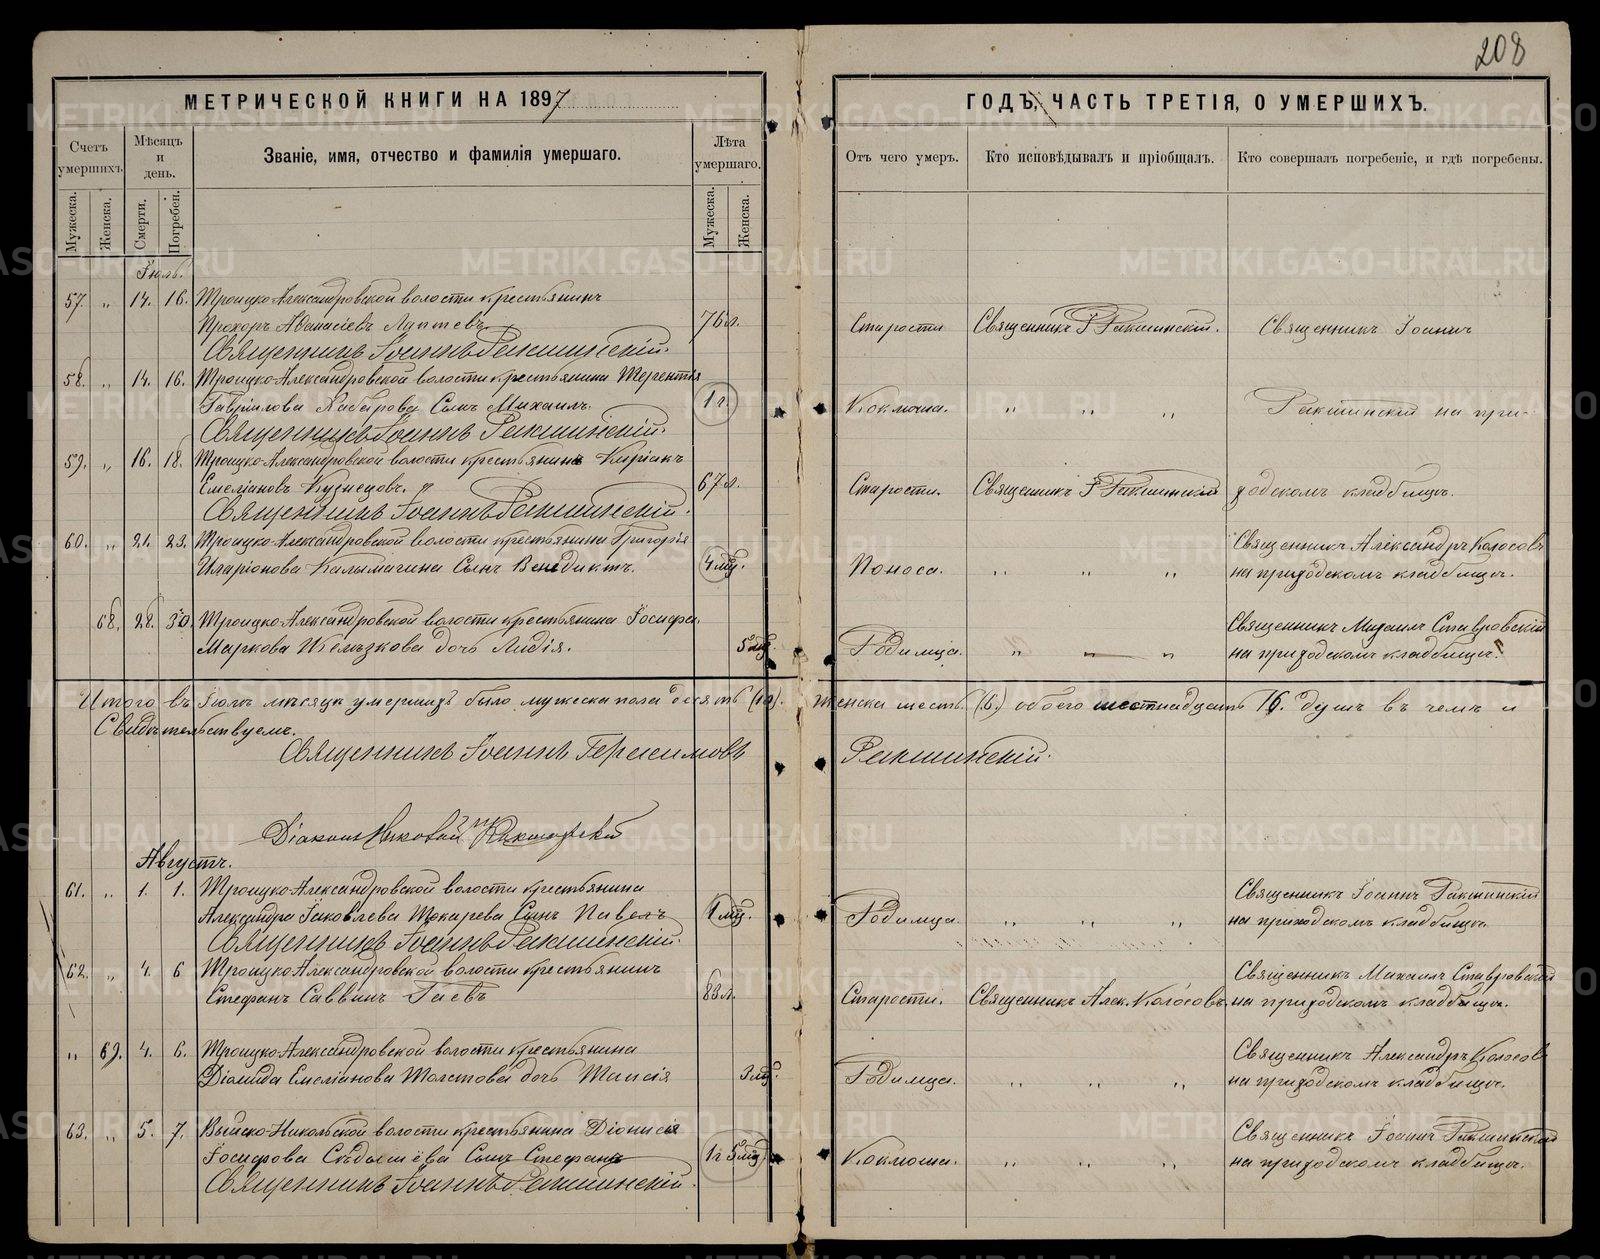 208
МЕТРИЧЕСКОЙ КНИГИ НА 1897
ГОДЪ, ЧАСТЬ ТРЕТІЯ, О УМЕРШИХЪ.
Счетъ умершихъ.
Мѣсяцъ и день.
Званіе, имя, отчество и фамилія умершаго.
Лѣта умершаго.
Отъ чего умеръ.
Кто исповѣдывалъ и пріобщалъ.
Кто совершалъ погребеніе, и гдѣ погребены.
Мужеска.
Женска.
Смерти.
Погребен.
Мужеска.
Женска.
Іюль.
57. „ 14. 16. Троицко-Александровской волости крестьянинъ
Прохоръ Аѳанасіевъ Лаптевъ. 76 л. Старости Священникъ І Ракшинскій. Священникъ Іоаннъ
Священникъ Іоаннъ Ракшинскій.
58. „ 14. 16. Троицко-Александровской волости крестьянина Терентія
Гавріилова Хабарова Сынъ Михаилъ. 1 г. Коклюша. „ „ „ Ракшинскій на при-
Священникъ Іоаннъ Ракшинскій.
59. „ 16. 18. Троицко-Александровской волости крестьянинъ Киріакъ
Емеліановъ Кузнецовъ. 67 л. Старости. Священникъ І Ракшинскій ходскомъ кладбищѣ.
Священникъ Іоаннъ Ракшинскій.
60. „ 21. 23. Троицко-Александровской волости крестьянина Григорія Священникъ Александръ Колосовъ
Иларіонова Калымагина Сынъ Венедиктъ. 4 мѣ. Поноса. „ „ „ на приходскомъ кладбищѣ.
68. 28. 30. Троицко-Александровской волости крестьянина Іосифа Священникъ Михаилъ Ставровскій
Маркова Желѣзкова дочь Лидія. 5 мѣ. Родимца. „ „ „ на приходскомъ кладбищѣ.
Итого въ Іюлѣ мѣсяцѣ умершихъ было мужеска пола десять (10). женска шесть (6.) обоего шестнадцать 16. душъ въ чемъ и
Свидѣтельствуемъ.
Священникъ Іоаннъ Герасимовъ Ракшинскій.
Діаконъ Николай
Августъ.
61. „ 1. 1. Троицко-Александровской волости крестьянина Священникъ Іоаннъ Ракшинскій
Александра Іаковлева Токарева Сынъ Павелъ 1 мѣ. Родимца. „ „ „ на приходскомъ кладбищѣ.
Священникъ Іоаннъ Ракшинскій.
62. „ 4. 6 Троицко-Александровской волости крестьянинъ Священникъ Михаилъ Ставровскій
Стефанъ Саввинъ Гаевъ 83 л. Старости. Священникъ Алек. Колосовъ. на приходскомъ кладбищѣ.
„ 69. 4. 6. Троицко-Александровской волости крестьянина Священникъ Александръ Колосовъ
Діомида Емеліанова Толстова дочь Таисія 3 мѣ. Родимца. „ „ „ на приходскомъ кладбищѣ.
63. „ 5. 7. Выйско-Никольской волости крестьянина Діонисія Священникъ Іоаннъ Ракшинскій
Іосифова Сѣдышева Сынъ Стефанъ 1 г 5 мѣ. Коклюша. „ „ „ на приходскомъ кладбищѣ.
Священникъ Іоаннъ Ракшинскій.
METRIKI.GASO-URAL.RU